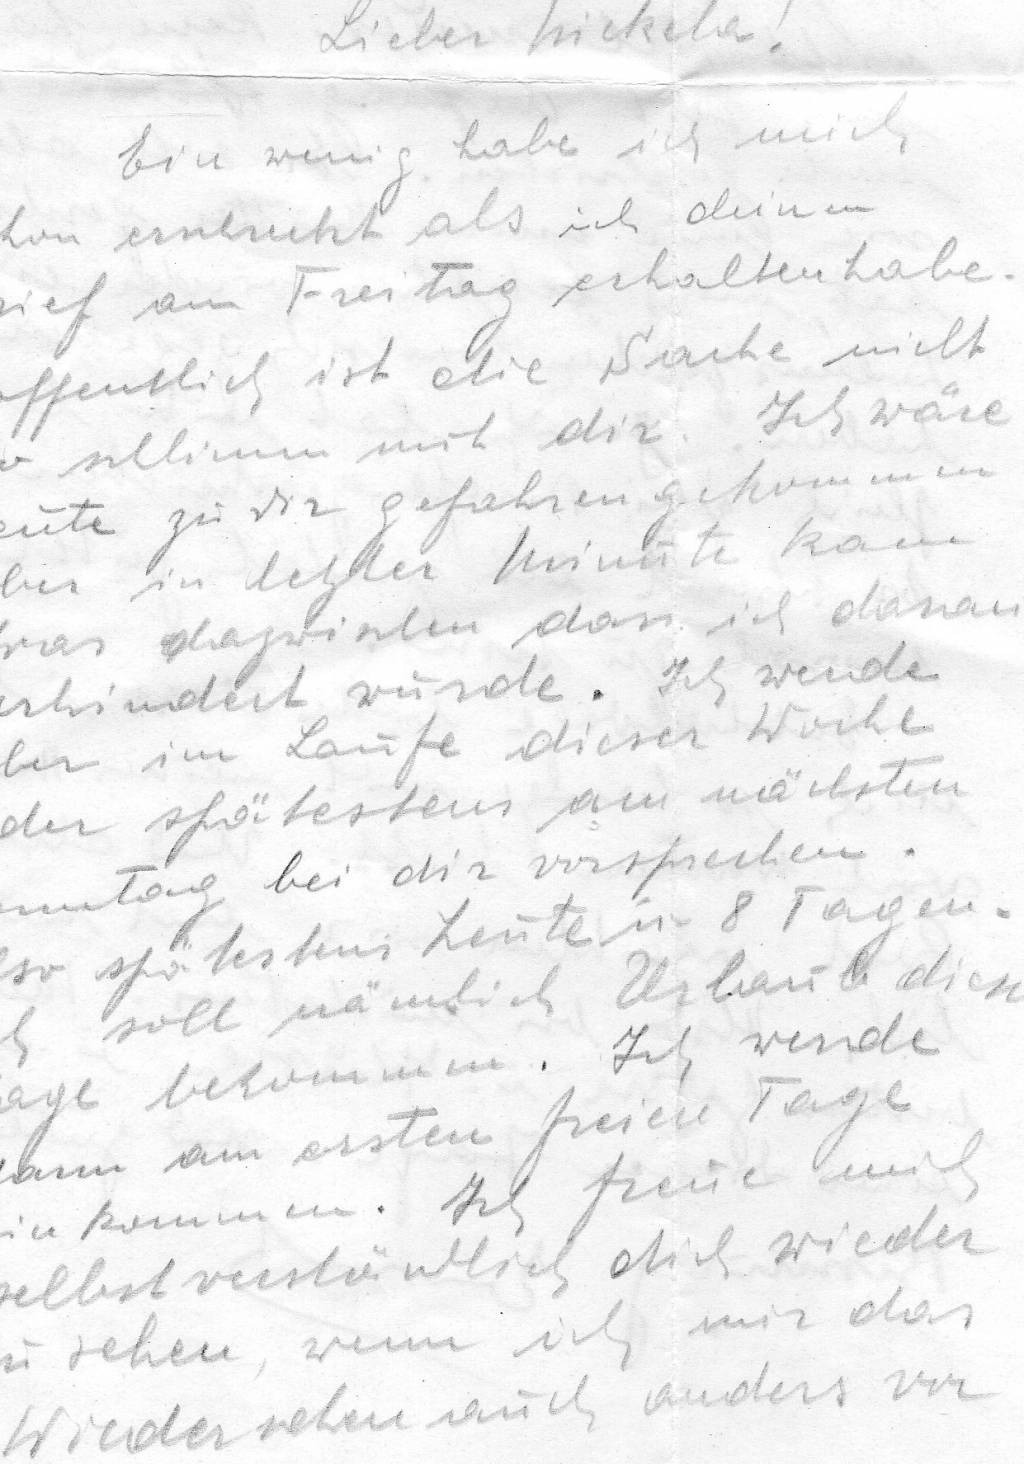 Lieber Mickela!
Ein wenig habe ich mich
hon erschreckt als ich deinen
rief am Freitag erhalten habe.
offentlich ist die Sache nicht
o schlimm mit dir. Ich wäre
eute zu dir gefahren gekommen
ber in letzter Minute kam
was dazwischen dass ich daran
erhindert wurde. Ich werde
ber im Laufe dieser Woche
der spätestens am nächsten
onntag bei dir vorsprechen.
lso spätestens heute in 8 Tagen.
ch soll nämlich Urlaub diese
age bekommen. Ich werde
dann am ersten freien Tage
in kommen. Ich freue mich
selbstverständlich dich wieder
zu sehen, wenn ich mir das
Wiedersehen auch anders vor